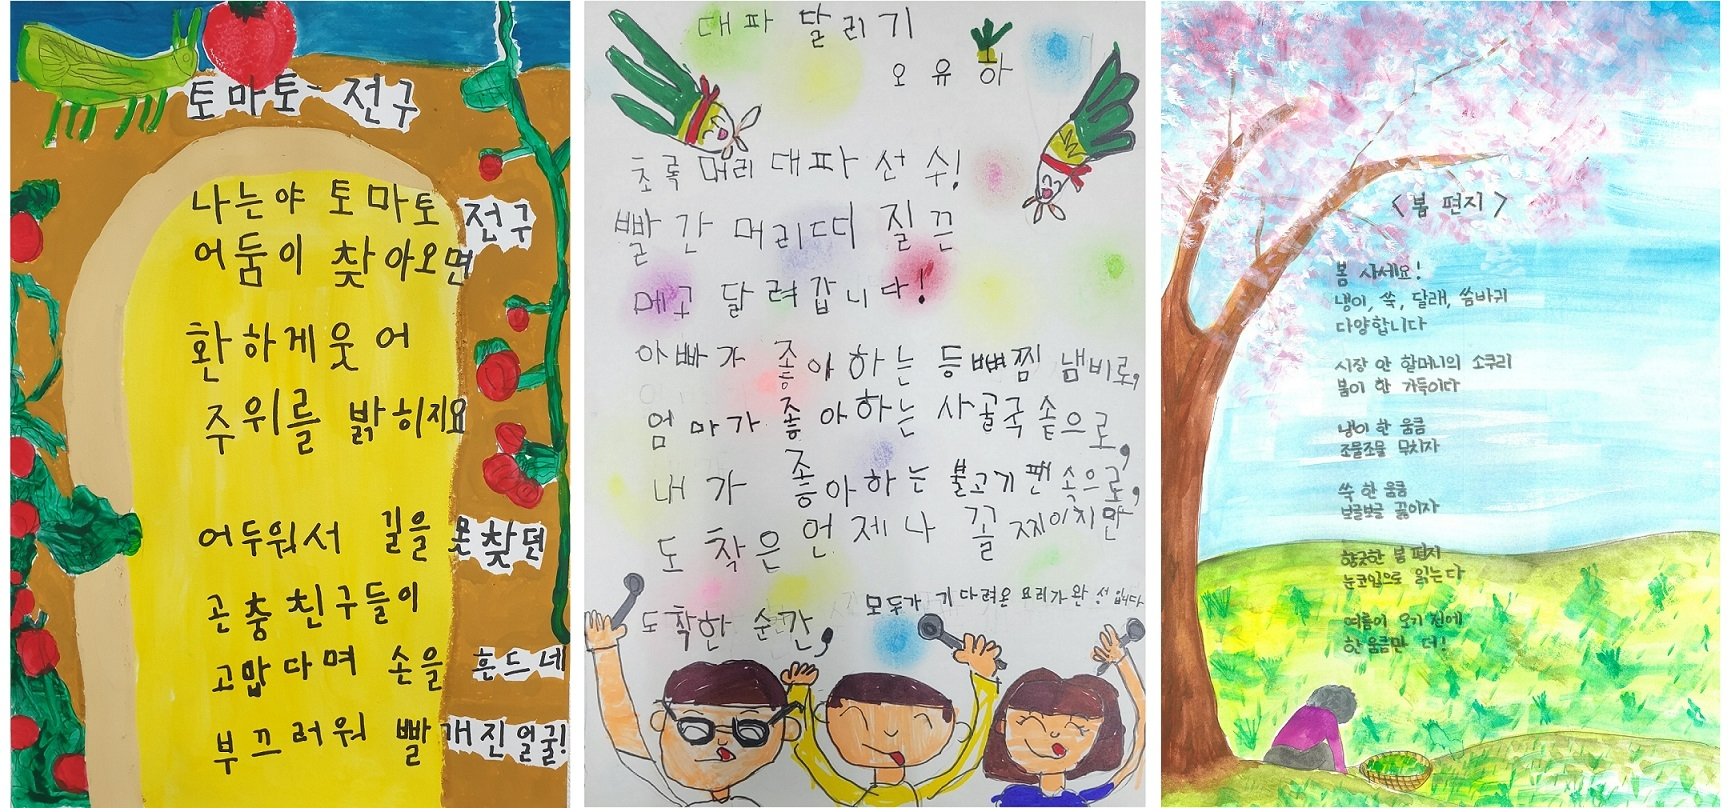 토마토 전구
나는야 토마토 전구
어둠이 찾아오면
환하게 웃어
주위를 밝히지요
어두워서 길을 못찾던
곤충친구들이
고맙다며 손을 흔드네
부끄러워 빨개진얼굴!
대파 달리기
오유아
초록 머리 대파 선수!
빨간 머리띠 질끈
메고 달려갑니다!
아빠가 좋아하는 등뼈찜 냄비로,
엄마가 좋아하는 사골국 솥으로,
내가 좋아하는 불고기 팬 속으로,
도착은 언제나 꼴찌이지만
도착한 순간, 모두가 기다려온 요리가 완성입니다
<봄 편지>
봄 사세요!
냉이, 쑥, 달래, 씀바귀
다양합니다
시장 안 할머니의 소쿠리
봄이 한 가득이다
냉이 한 움큼
조물조물 무치자
쑥 한 움큼
보글보글 끓이자
향긋한 봄 편지
눈코입으로 읽는다
여름이 오기 전에
한 움큼만 더!